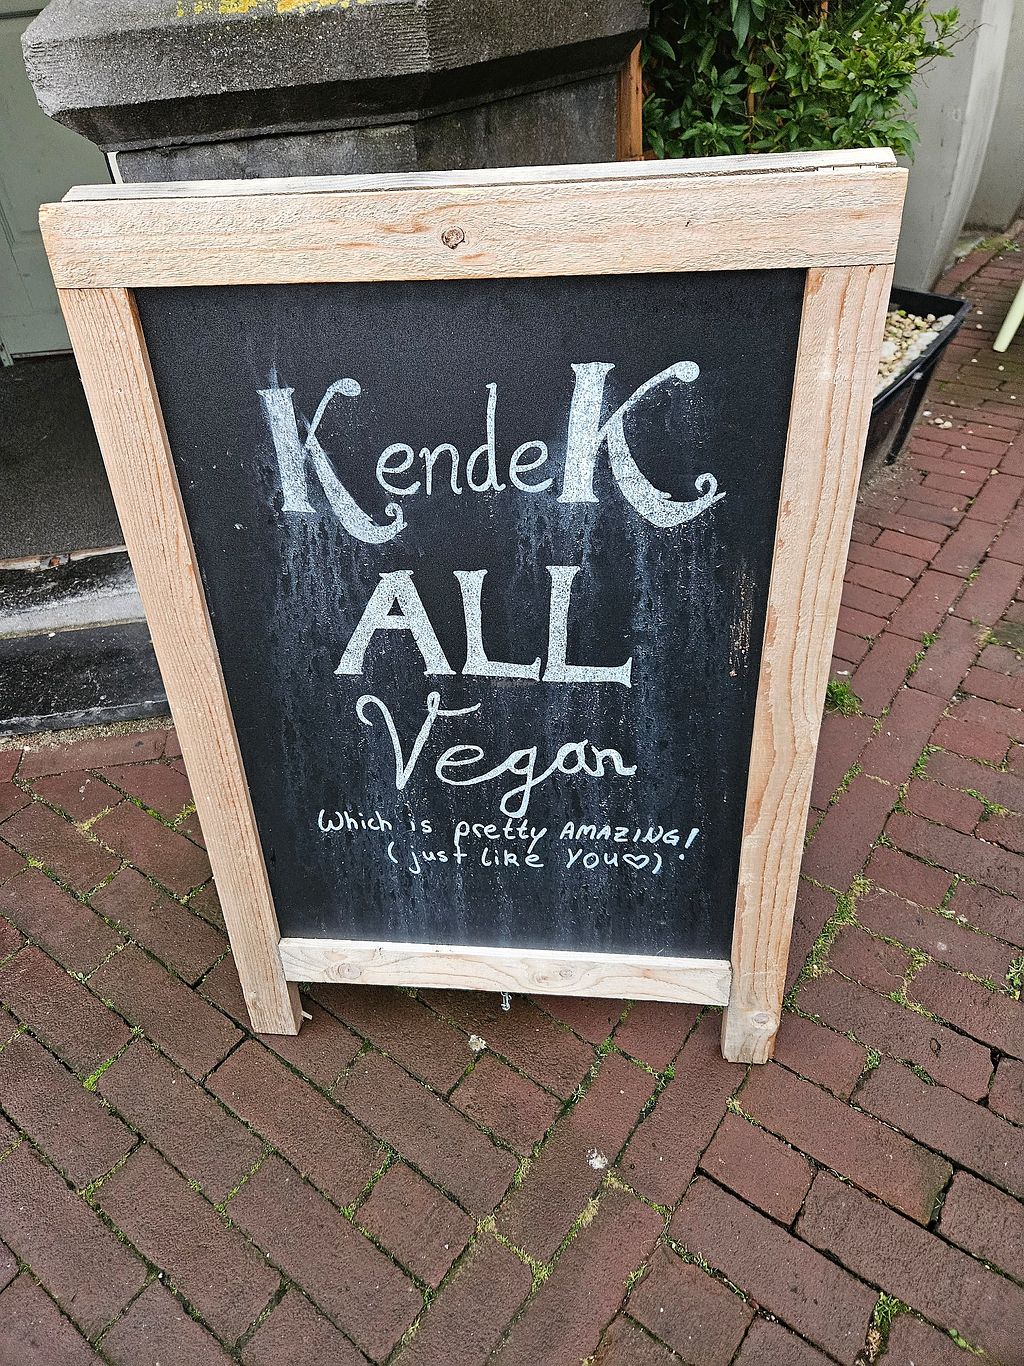 KendeK
ALL
Vegan
Which is pretty AMAZING!
(just like YOU♡)